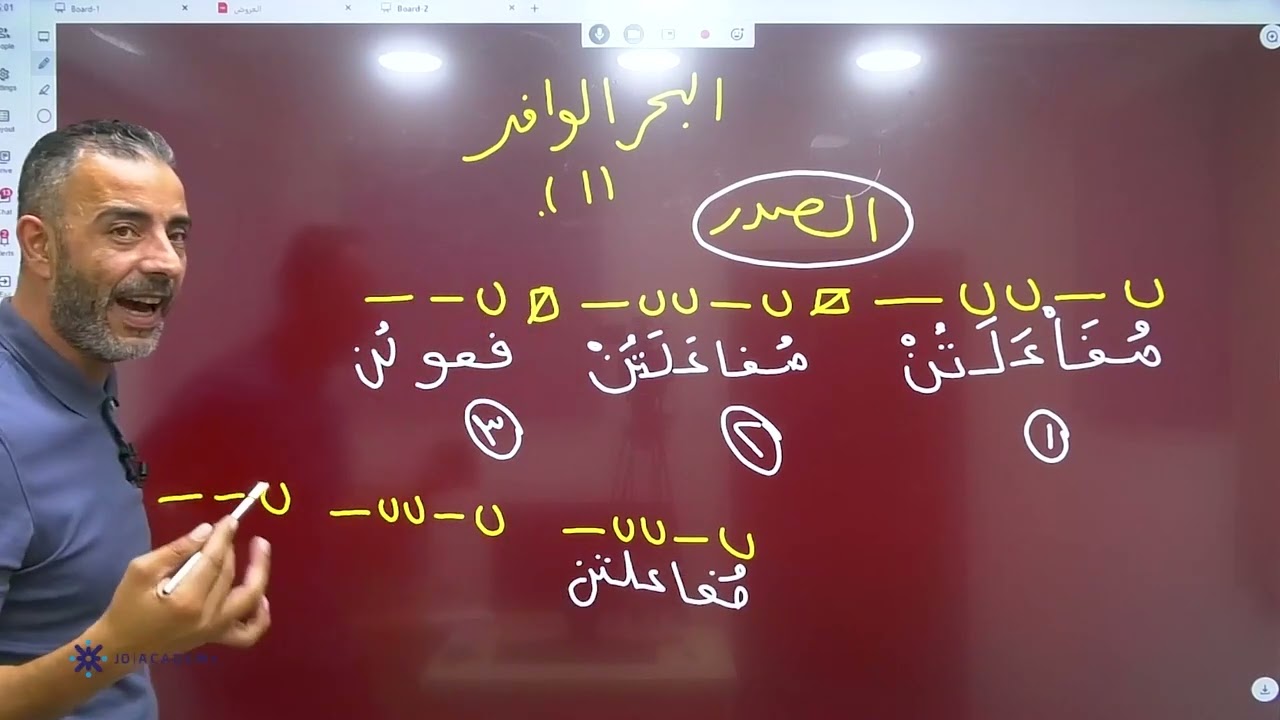 Board-1
العروض
Board-2
البحر الوافر
(١)
الصدر
ب – ب ب – ب – ب ب – ب – –
مُفَاْعَلَتُنْ مُفاعَلَتُنْ فعولُن
١ ٢ ٣
ب – ب ب – ب – ب ب – ب – –
مُفاعلتن
JD|ACADEMY